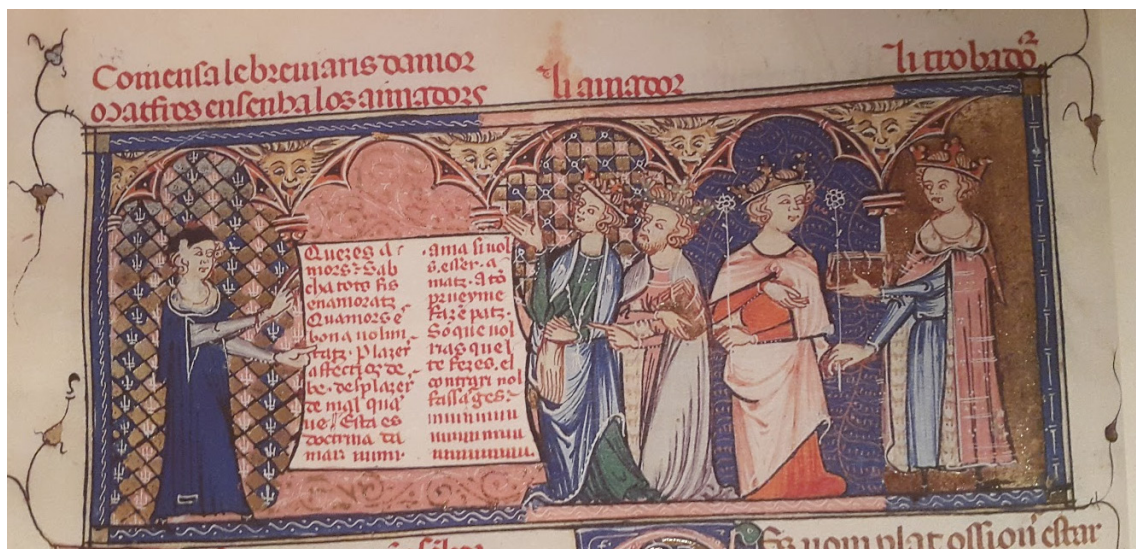 Comensa lebreuiaris damor
Matfres ensenha los aimadors
li aimador
li trobador
Quezes a
mors Sab
chatotz fis
enamoratz
Quamors e
bona uolun
tatz. Plazer
affectios de
be. desplazer
de mal que
ue. Esta es
doctrina da
mar
Ama si uol
s. esser. a
matz. A to
prueyme
faze patz.
So que uol
rias quel
te fezes. el
contrari nol
fassages
estar